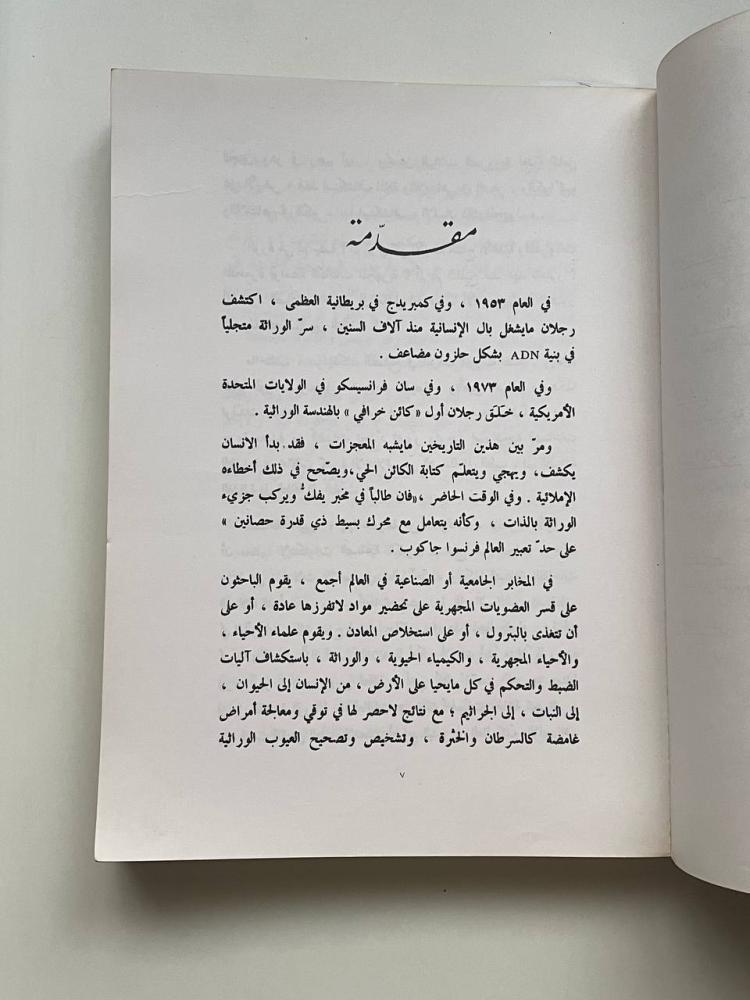 مقدّمة
في العام ١٩٥٣ ، وفي كمبريدج في بريطانية العظمى ، اكتشف
رجلان مايشغل بال الإنسانية منذ آلاف السنين ، سرّ الوراثة متجلياً
في بنية ADN بشكل حلزون مضاعف .
وفي العام ١٩٧٣ ، وفي سان فرانسيسكو في الولايات المتحدة
الأمريكية ، خلَق رجلان أول «كائن خرافي» بالهندسة الوراثية .
ومرّ بين هذين التاريخين مايشبه المعجزات ، فقد بدأ الانسان
يكشف، ويهجي ويتعلّم كتابة الكائن الحي،ويصّحح في ذلك أخطاءه
الإملائية . وفي الوقت الحاضر ،«فان طالباً في مخبر يفكُّ ويركب جزيء
الوراثة بالذات ، وكأنه يتعامل مع محرك بسيط ذي قدرة حصانين »
على حدّ تعبير العالم فرنسوا جاكوب .
في المخابر الجامعية أو الصناعية في العالم أجمع ، يقوم الباحثون
على قسر العضويات المجهرية على تحضير مواد لاتفرزها عادة ، أو على
أن تتغذى بالبترول ، أو على استخلاص المعادن . ويقوم علماء الأحياء ،
والأحياء المجهرية ، والكيمياء الحيوية ، والوراثة ، باستكشاف آليات
الضبط والتحكم في كل مايحيا على الأرض ، من الإنسان إلى الحيوان ،
إلى النبات ، إلى الجراثيم ؛ مع نتائج لاحصر لها في توقي ومعالجة أمراض
غامضة كالسرطان والخثرة ، وتشخيص وتصحيح العيوب الوراثية
٧